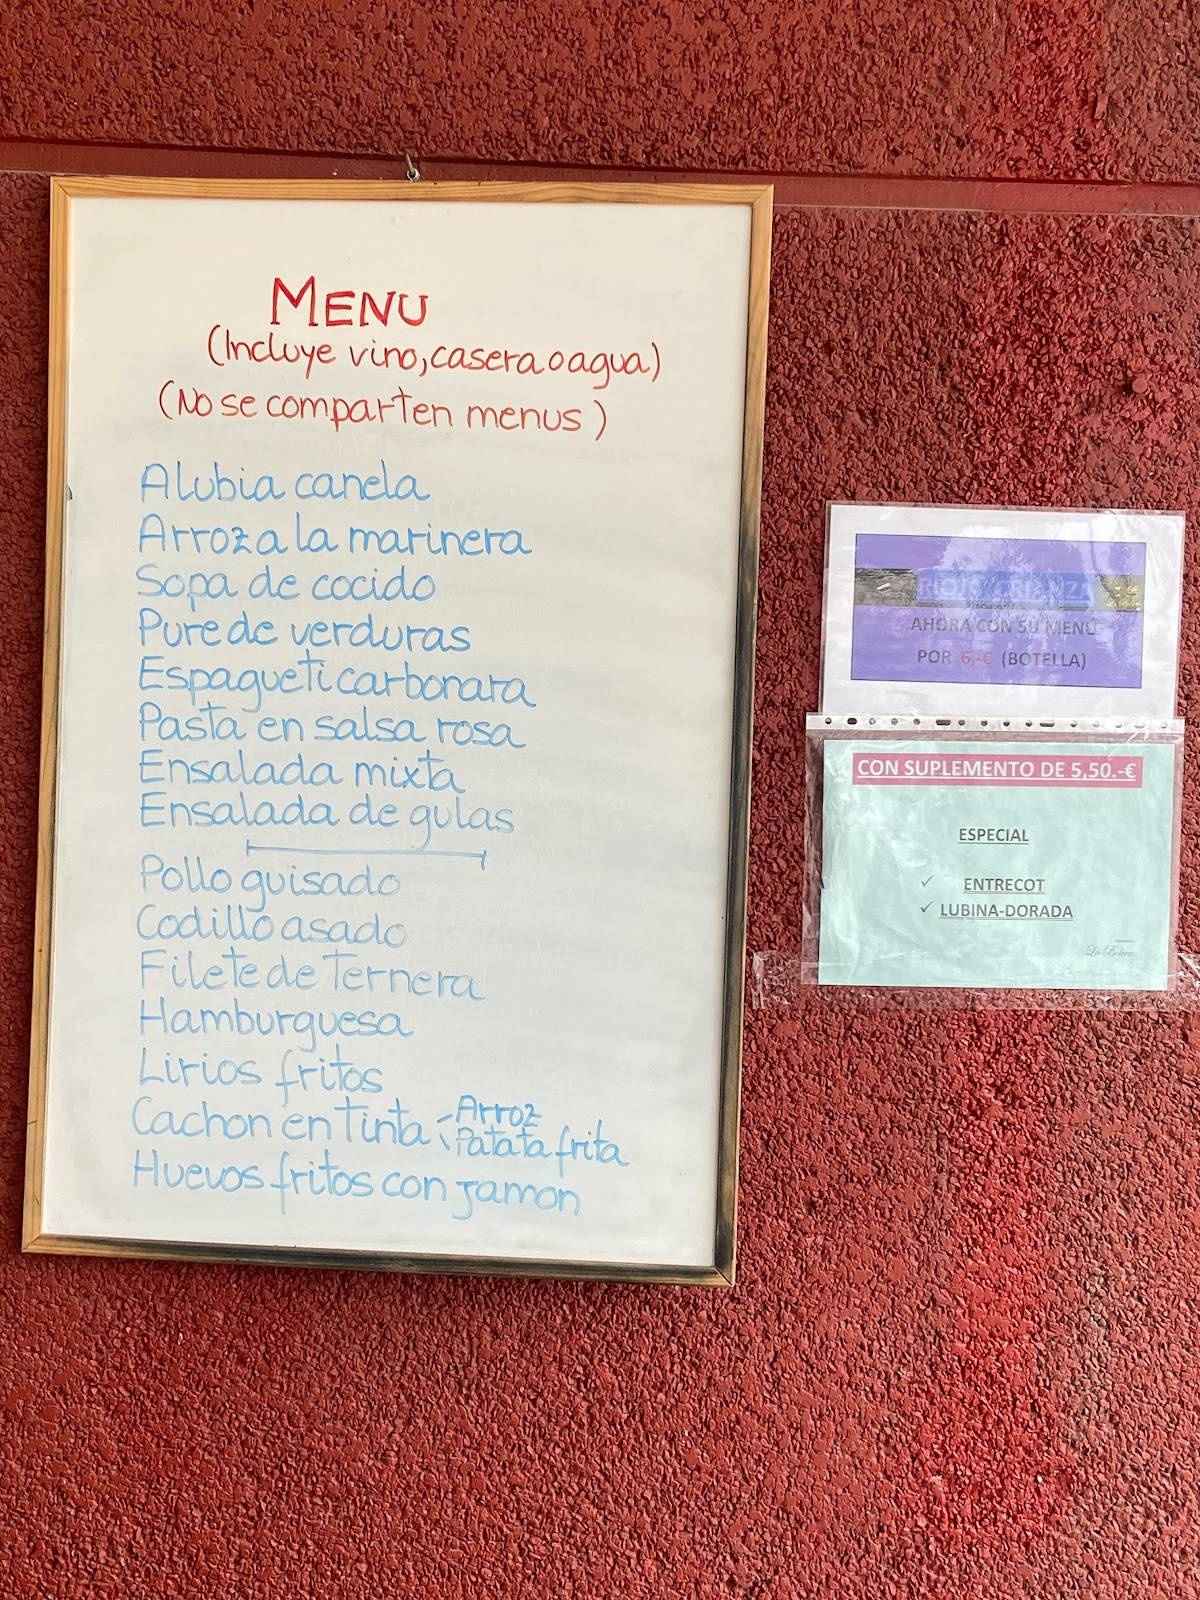 MENU
(Incluye vino, casera o agua)
(No se comparten menus)
Alubia canela
Arroz a la marinera
Sopa de cocido
Pure de verduras
Espagueti carbonara
Pasta en salsa rosa
Ensalada mixta
Ensalada de gulas
Pollo guisado
Codillo asado
Filete de ternera
Hamburguesa
Lirios fritos
Cachon en tinta
Arroz
Patata frita
Huevos fritos con jamon
RIOJA CRIANZA
AHORA CON SU MENÚ
POR 6,-€ (BOTELLA)
CON SUPLEMENTO DE 5,50.-€
ESPECIAL
✓ ENTRECOT
✓ LUBINA-DORADA
La Bolera